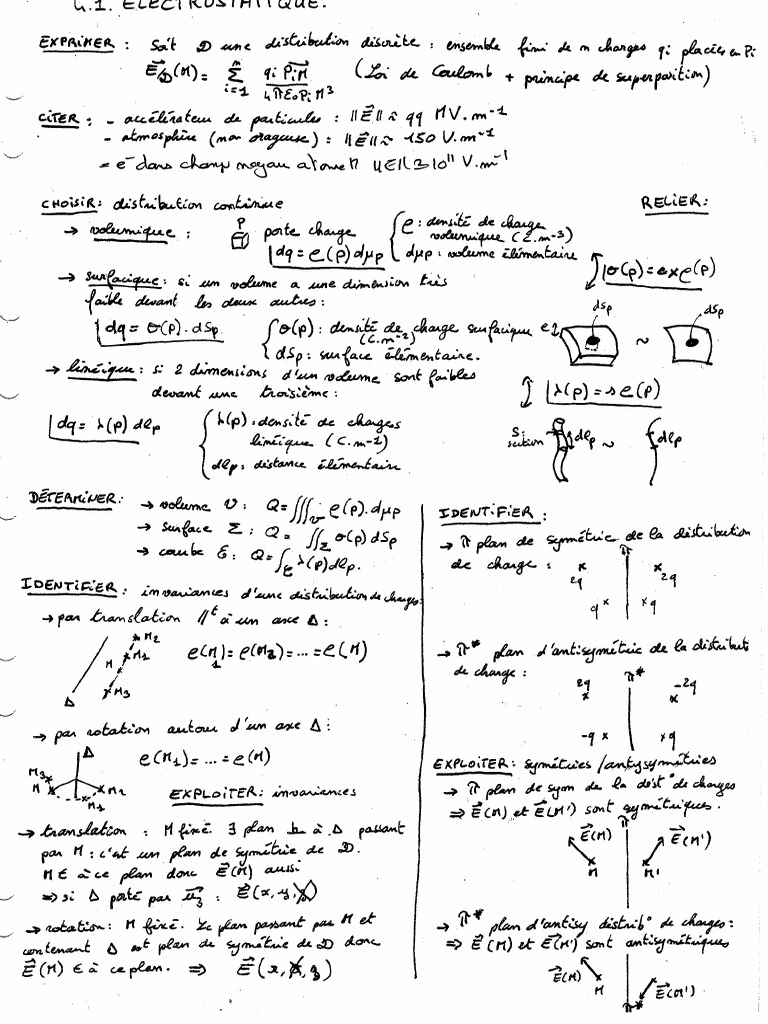 4.1. ELECTROSTATIQUE.
EXPRIMER : Soit D une distribution discrète : ensemble fini de n charges qi placées en Pi
E/D(M) = Σ i=1 n qi PiM / 4πε0 PiM³ (Loi de Coulomb + principe de superposition)
CITER : - accélérateur de particules : ||E|| ≈ 99 MV.m-1
- atmosphère (non orageuse) : ||E|| ≈ 150 V.m-1
- e- dans champ noyau atome H ||E|| ≥ 10^11 V.m-1
CHOISIR : distribution continue
RELIER :
→ volumique : P porte charge
dq = ρ(P) dμP
ρ : densité de charge
volumique (C.m-3)
dμP : volume élémentaire
σ(P) = e x ρ(P)
→ surfacique : si un volume a une dimension très
faible devant les deux autres :
dq = σ(P). dSP
σ(P) : densité de charge surfacique
(C.m-2)
dSP : surface élémentaire.
e
dSP
~
dSP
→ linéique : si 2 dimensions d'un volume sont faibles
devant une troisième :
λ(P) = s ρ(P)
dq = λ(P) dlP
λ(P) : densité de charges
linéique (C.m-1)
dlP : distance élémentaire
S:
section
dlP ~ dlP
DÉTERMINER : → volume V : Q = ∭V ρ(P). dμP
→ surface Σ : Q = ∬Σ σ(P) dSP
→ courbe C : Q = ∫C λ(P) dlP.
IDENTIFIER : invariances d'une distribution de charges
→ par translation //t à un axe Δ :
M2
M1
M
M3
Δ
ρ(M1) = ρ(M2) = ... = ρ(M)
→ par rotation autour d'un axe Δ :
Δ
M3
M
M1
M2
ρ(M1) = ... = ρ(M)
EXPLOITER : invariances
→ translation : M fixé. ∃ plan ⊥ à Δ passant
par M : c'est un plan de symétrie de D.
M ∈ à ce plan donc E(M) aussi
⇒ si Δ porté par uz : E(x, y, z)
→ rotation : M fixé. Le plan passant par M et
contenant Δ est plan de symétrie de D donc
E(M) ∈ à ce plan. ⇒ E(r, θ, z)
IDENTIFIER :
→ π plan de symétrie de la distribution
de charge :
π
2q
2q
q
q
→ π* plan d'antisymétrie de la distribut°
de charge :
π*
2q
-2q
-q
q
EXPLOITER : symétries / antysymétries
→ π plan de sym de la dist° de charges
⇒ E(M) et E(M') sont symétriques.
π
E(M)
E(M')
M
M'
→ π* plan d'antisy distrib° de charges :
⇒ E(M) et E(M') sont antisymétriques
E(M)
M
E(M')
π*